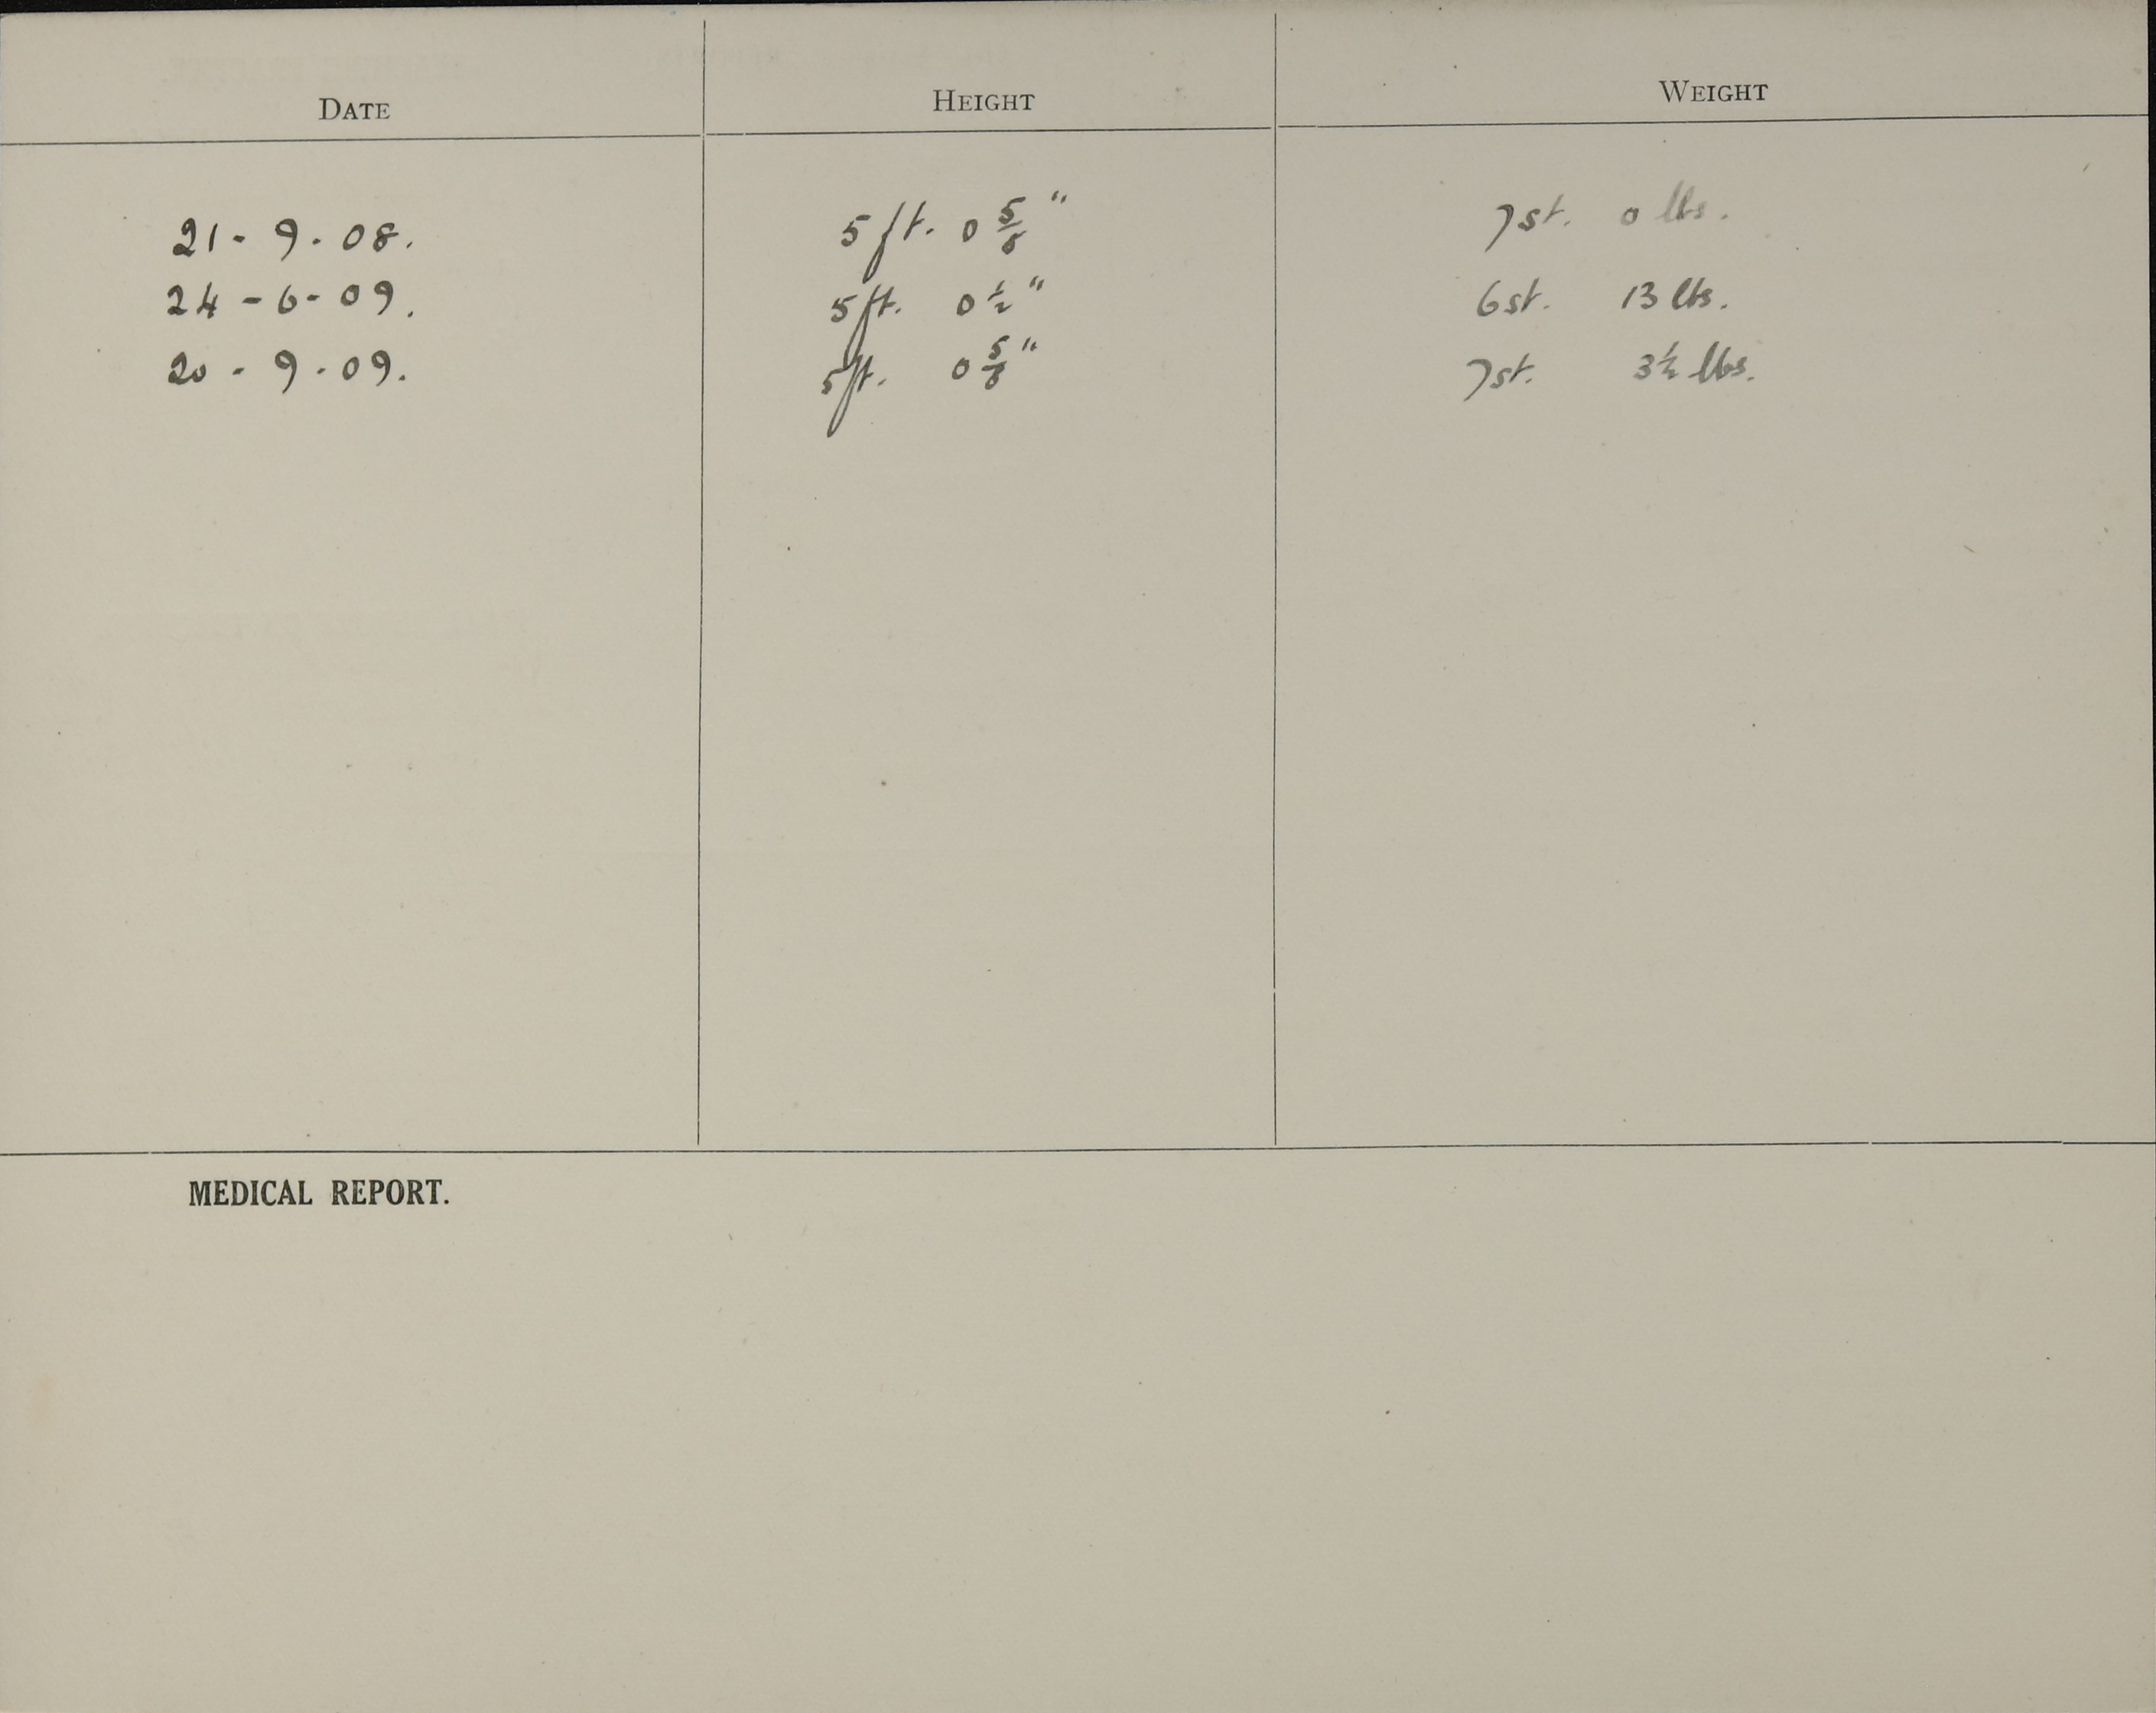 DATE HEIGHT WEIGHT
21 - 9 - 08. 5 ft. 0 5/8 " 7 st. 0 lbs.
24 - 6 - 09. 5 ft. 0 1/2 " 6 st. 13 lbs.
20 - 9 - 09. 5 ft. 0 5/8 " 7 st. 3 1/2 lbs.
MEDICAL REPORT.